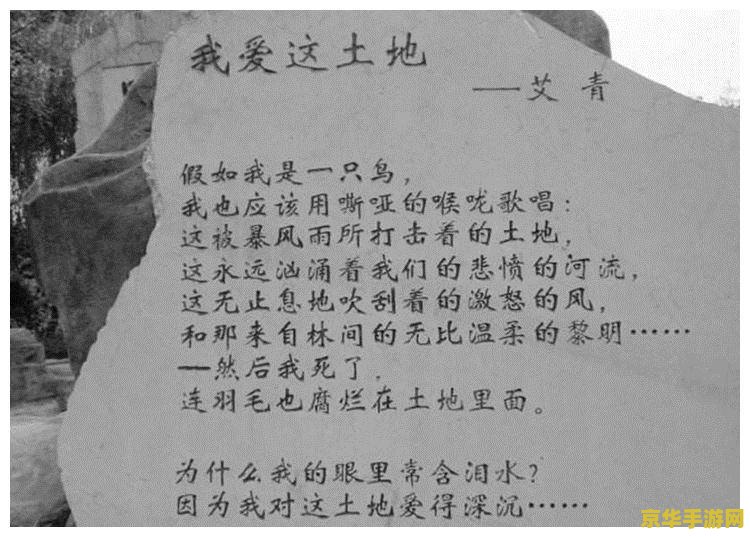 我爱这土地
——艾青
假如我是一只鸟，
我也应该用嘶哑的喉咙歌唱：
这被暴风雨所打击着的土地，
这永远汹涌着我们的悲愤的河流，
这无止息地吹刮着的激怒的风，
和那来自林间的无比温柔的黎明……
——然后我死了，
连羽毛也腐烂在土地里面。
为什么我的眼里常含泪水？
因为我对这土地爱得深沉……
京华手游网